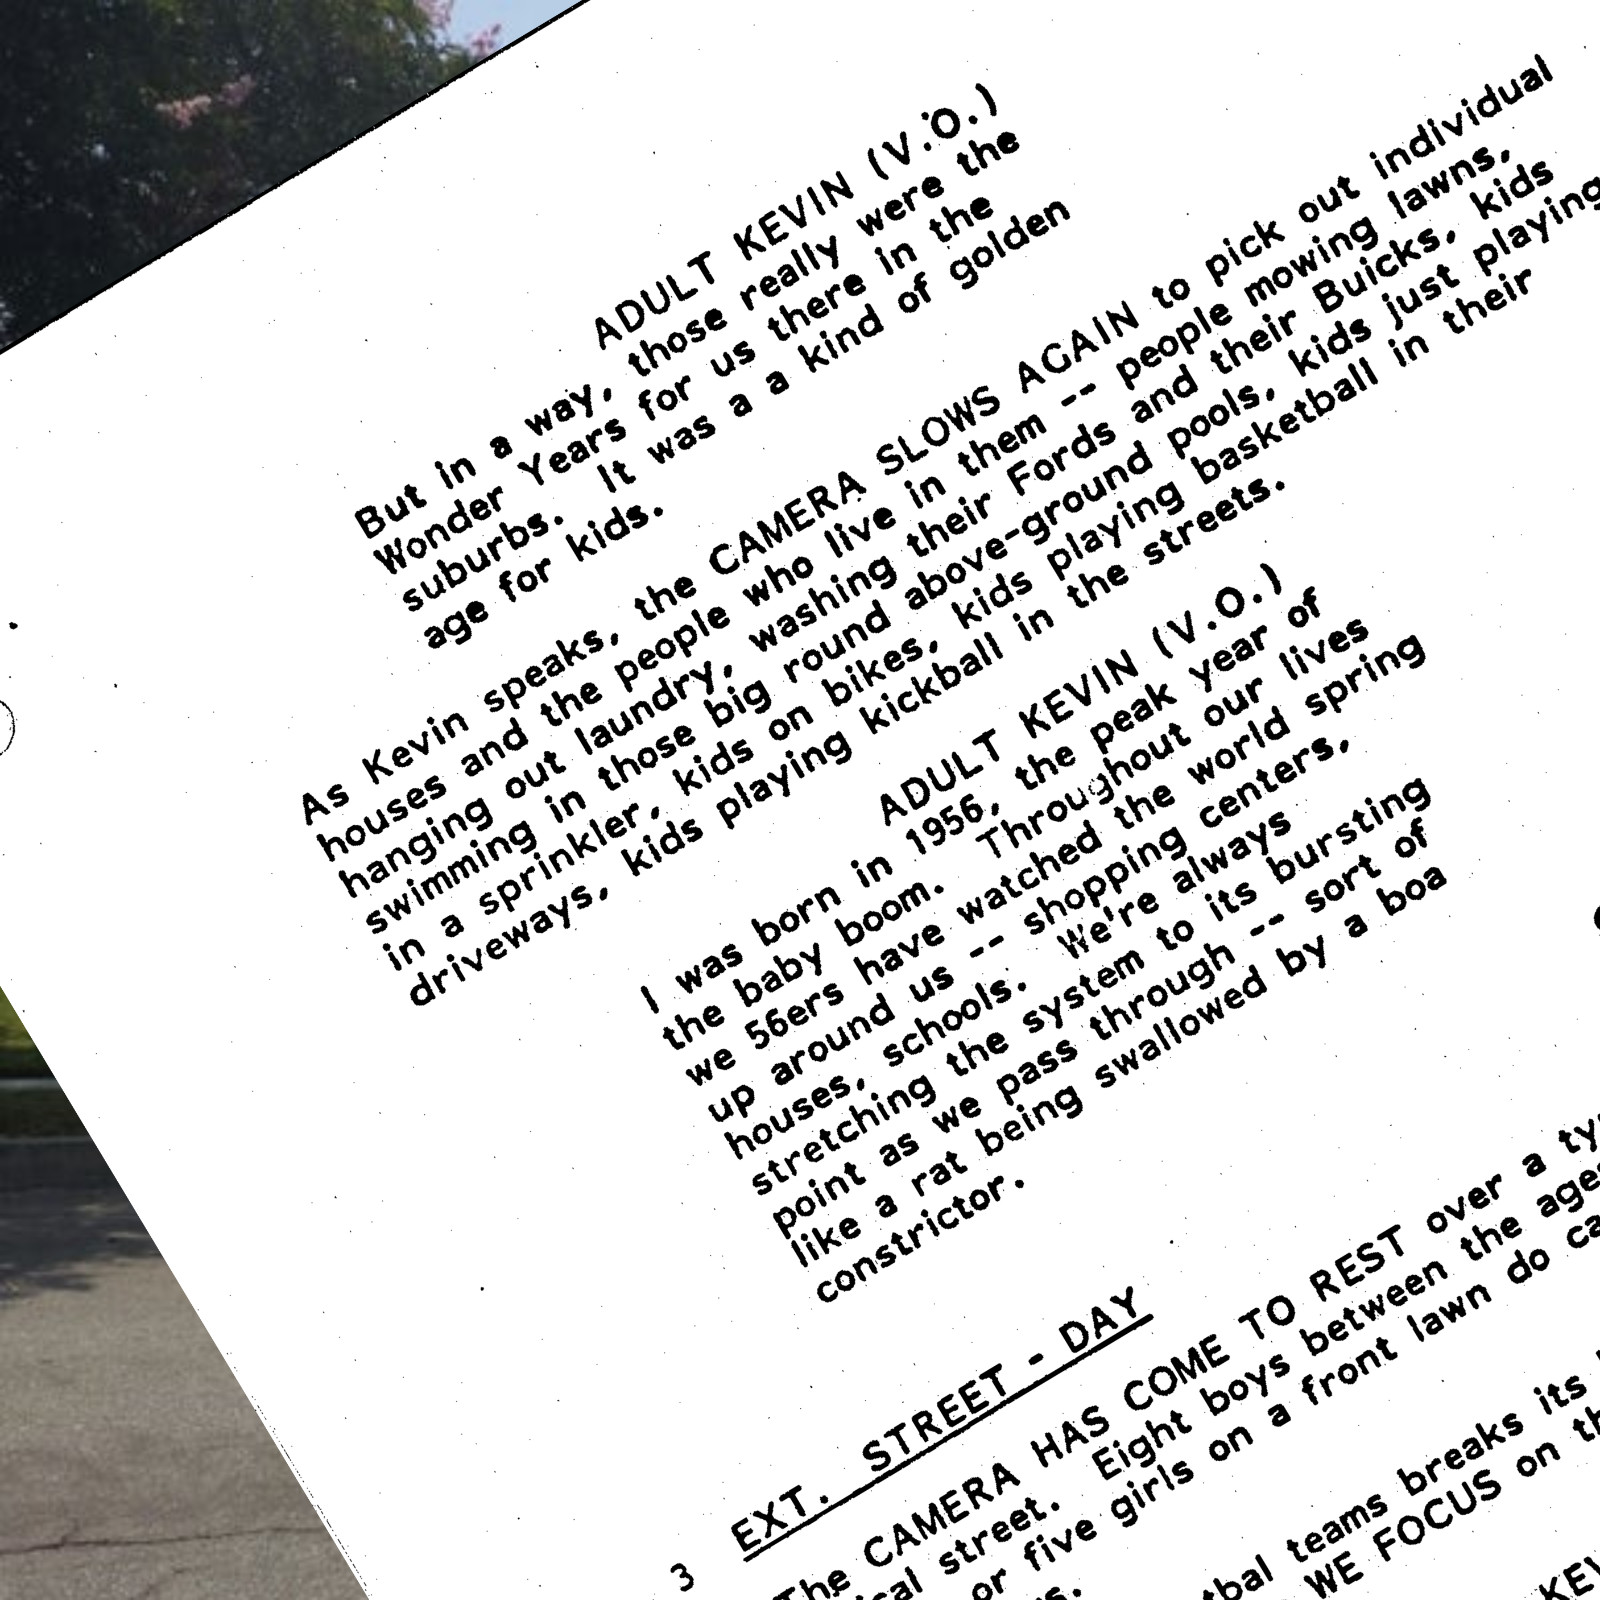 ADULT KEVIN (V.O.)
But in a way, those really were the
Wonder Years for us there in the
suburbs. It was a a kind of golden
age for kids.
As Kevin speaks, the CAMERA SLOWS AGAIN to pick out individual
houses and the people who live in them -- people mowing lawns,
hanging out laundry, washing their Fords and their Buicks, kids
swimming in those big round above-ground pools, kids just playing
in a sprinkler, kids on bikes, kids playing basketball in their
driveways, kids playing kickball in the streets.
ADULT KEVIN (V.O.)
I was born in 1956, the peak year of
the baby boom. Throughout our lives
we 56ers have watched the world spring
up around us -- shopping centers,
houses, schools. We're always
stretching the system to its bursting
point as we pass through -- sort of
like a rat being swallowed by a boa
constrictor.
3 EXT. STREET - DAY
The CAMERA HAS COME TO REST over a
street. Eight boys between the
or five girls on a front lawn do
teams breaks its
WE FOCUS on